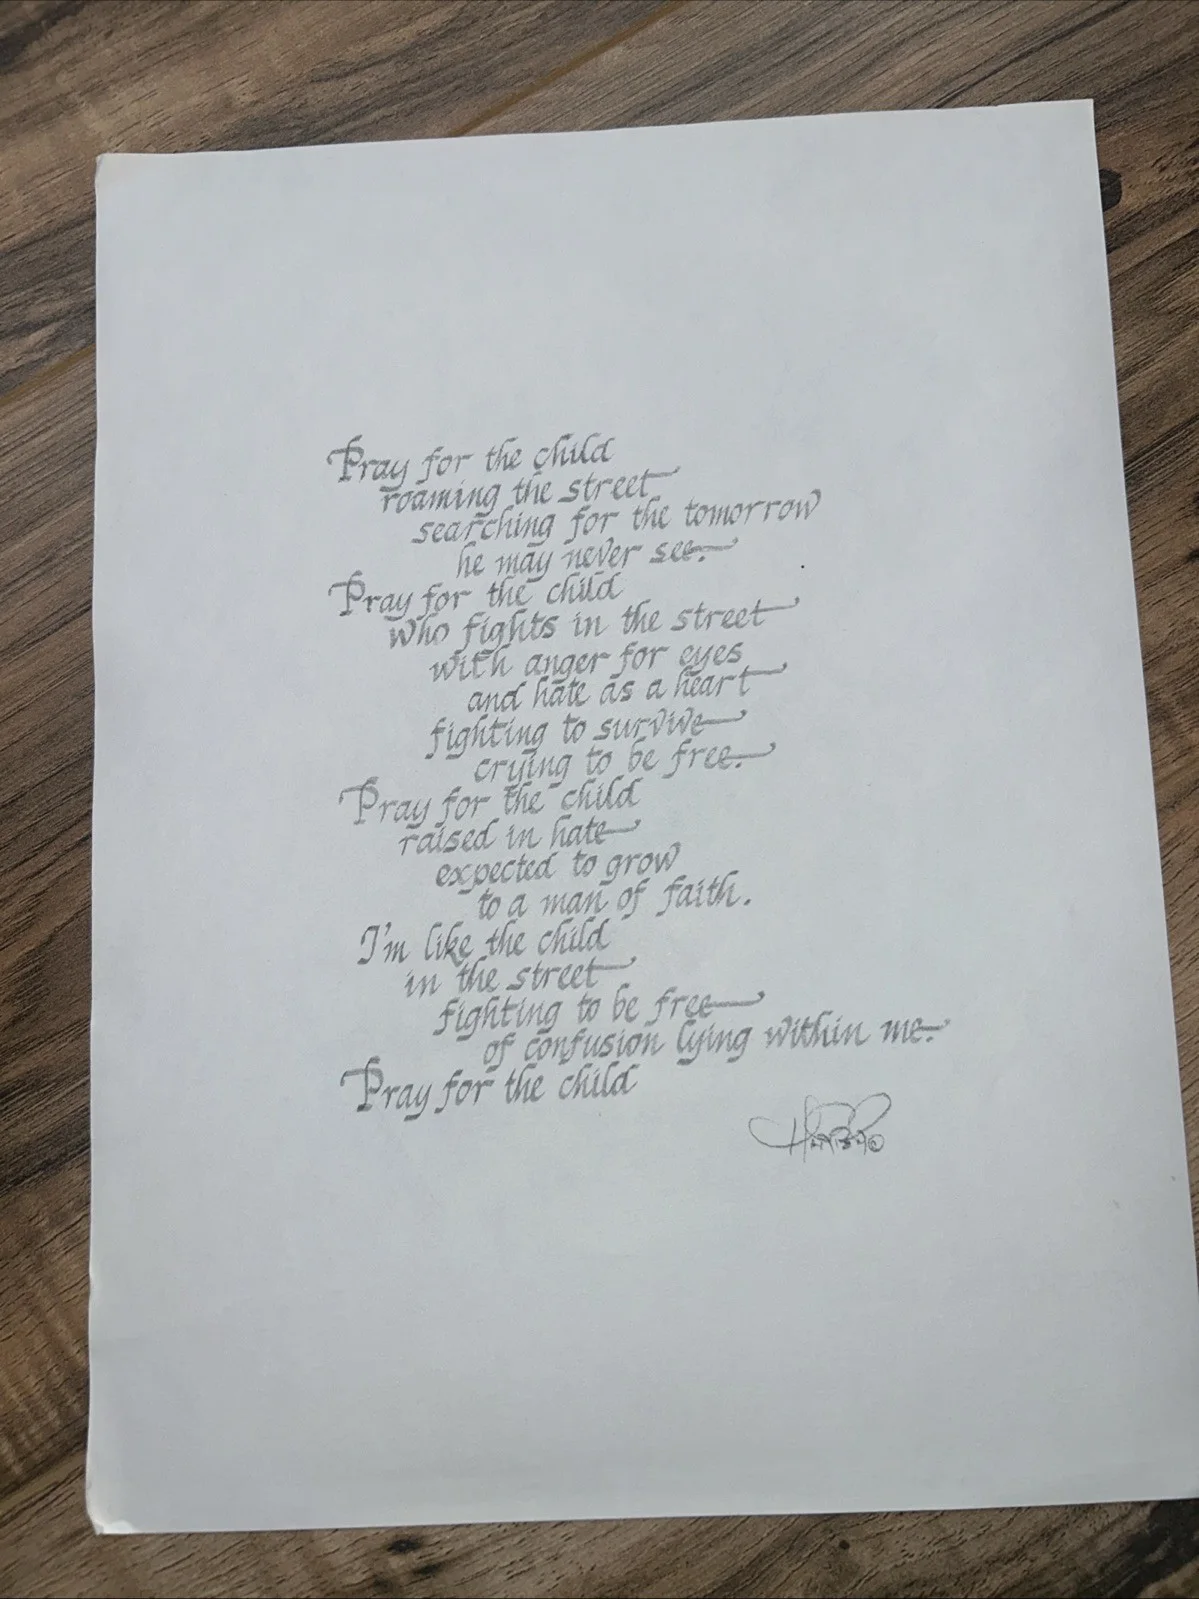 Pray for the child
roaming the street
searching for the tomorrow
he may never see.
Pray for the child
who fights in the street
with anger for eyes
and hate as a heart
fighting to survive
crying to be free.
Pray for the child
raised in hate
expected to grow
to a man of faith.
I'm like the child
in the street
fighting to be free
of confusion lying within me.
Pray for the child